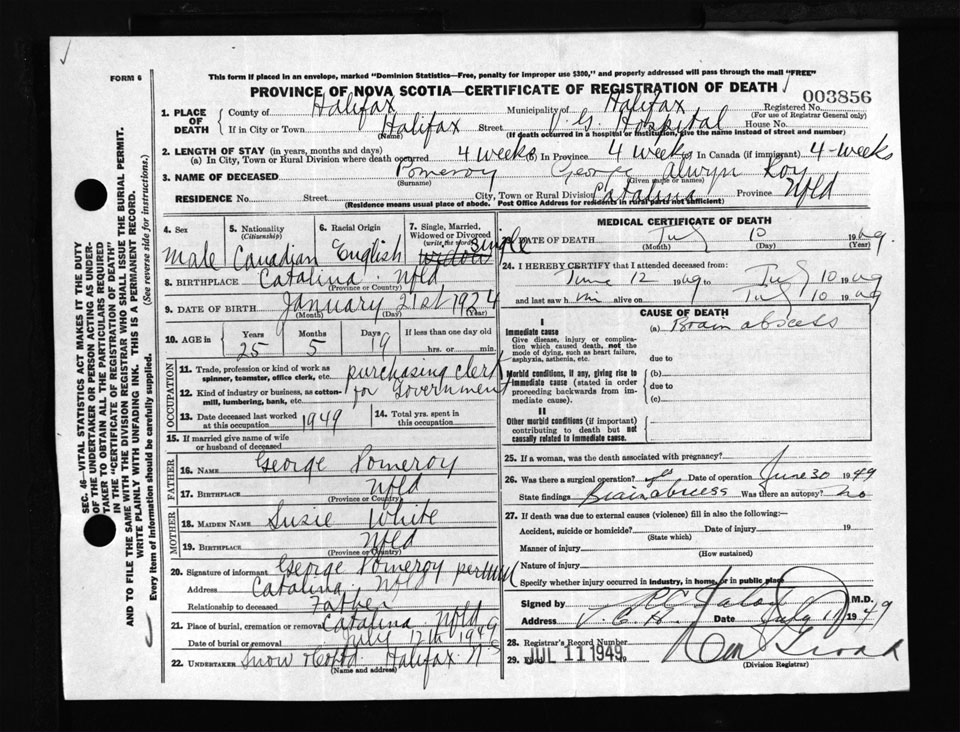 FORM 6
This form if placed in an envelope, marked "Dominion Statistics—Free, penalty for improper use $300," and properly addressed will pass through the mail "FREE"
PROVINCE OF NOVA SCOTIA—CERTIFICATE OF REGISTRATION OF DEATH
003856
SEC. 46—VITAL STATISTICS ACT MAKES IT THE DUTY
OF THE UNDERTAKER OR PERSON ACTING AS UNDER-
TAKER TO OBTAIN ALL THE PARTICULARS REQUIRED
IN THE "CERTIFICATE OF REGISTRATION OF DEATH"
AND TO FILE THE SAME WITH THE DIVISION REGISTRAR WHO SHALL ISSUE THE BURIAL PERMIT.
WRITE PLAINLY WITH UNFADING INK. THIS IS A PERMANENT RECORD.
Every item of information should be carefully supplied. (See reverse side for instructions.)
1. PLACE OF DEATH County of Halifax Municipality of Halifax Registered No.
(For use of Registrar General only)
If in City or Town Halifax Street V. G. Hospital House No.
(Name) (If death occurred in a hospital or institution, give the name instead of street and number)
2. LENGTH OF STAY (in years, months and days)
(a) In City, Town or Rural Division where death occurred 4 weeks (b) In Province 4 weeks (c) In Canada (if immigrant) 4-weeks
3. NAME OF DECEASED Pomeroy George Alwyn Roy
(Surname) (Given name or names)
RESIDENCE No. Street City, Town or Rural Division Catalina Province Nfld
(Residence means usual place of abode. Post Office Address for residents in rural parts not sufficient)
4. Sex Male
5. Nationality (Citizenship) Canadian
6. Racial Origin English
7. Single, Married, Widowed or Divorced (write the word) Single
8. BIRTHPLACE Catalina Nfld
(Province or Country)
9. DATE OF BIRTH January 21st 1924
(Month) (Day) (Year)
10. AGE in Years 25 Months 5 Days 19 If less than one day old hrs. or min.
OCCUPATION
11. Trade, profession or kind of work as spinner, teamster, office clerk, etc. purchasing clerk
12. Kind of industry or business, as cotton-mill, lumbering, bank, etc. for Government
13. Date deceased last worked at this occupation 1949 14. Total yrs. spent in this occupation
15. If married give name of wife or husband of deceased
FATHER
16. NAME George Pomeroy
17. BIRTHPLACE Nfld
(Province or Country)
MOTHER
18. MAIDEN NAME Susie White
19. BIRTHPLACE Nfld
(Province or Country)
20. Signature of informant George Pomeroy per
Address Catalina Nfld
Relationship to deceased Father
21. Place of burial, cremation or removal Catalina Nfld
Date of burial or removal July 12th 1949
22. UNDERTAKER Snow & Co Ltd Halifax N S
(Name and address)
MEDICAL CERTIFICATE OF DEATH
DATE OF DEATH July 10 1949
(Month) (Day) (Year)
24. I HEREBY CERTIFY that I attended deceased from:
June 12 1949 July 10 1949
and last saw him alive on July 10 1949
CAUSE OF DEATH
I
Immediate cause
Give disease, injury or complication which caused death, not the mode of dying, such as heart failure, asphyxia, asthenia, etc.
(a) Brain abscess
due to
Morbid conditions, if any, giving rise to immediate cause (stated in order proceeding backwards from immediate cause).
(b)
due to
(c)
II
Other morbid conditions (if important) contributing to death but not causally related to immediate cause.
25. If a woman, was the death associated with pregnancy?
26. Was there a surgical operation? yes Date of operation June 30 1949
State findings Brain abscess Was there an autopsy? no
27. If death was due to external causes (violence) fill in also the following:—
Accident, suicide or homicide? Date of injury 19
(State which)
Manner of injury
(How sustained)
Nature of injury
Specify whether injury occurred in industry, in home, or in public place
Signed by M.D.
Address V. G. H. Date July 11 1949
28. Registrar's Record Number
29. Filed JUL 11 1949
(Division Registrar)